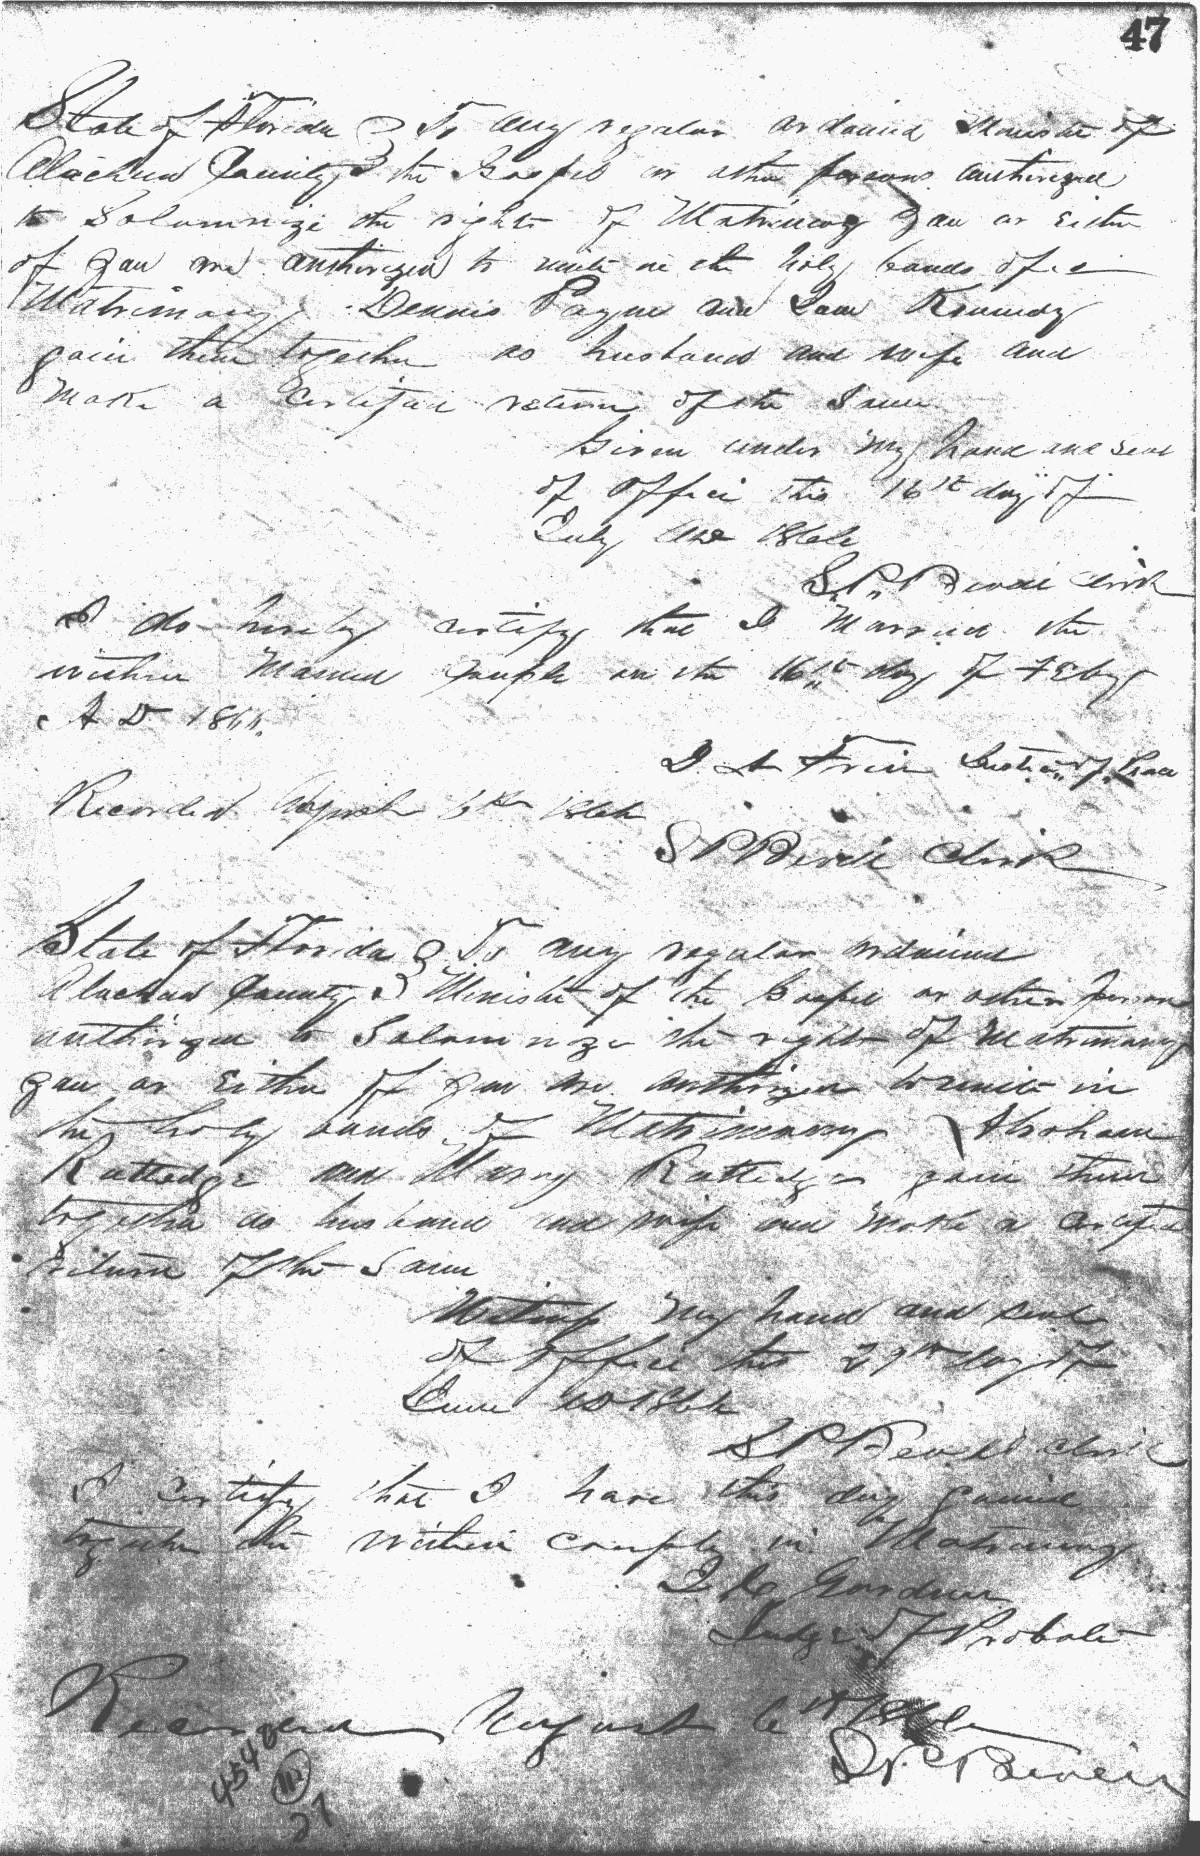 47
State of Florida } To any regular ordained Minister of
Alachua County } the Gospel or other persons authorized
to Solumnize the rights of Matrimony you or Either
of you are authorized to unite in the holy bands of
Matrimony Dennis Payne and Kennedy
join them together as husband and wife and
Make a Certified return of the Same
Given under My hand and seal
of Office this 16th day of
July AD 1866
S. P. Bevill Clerk
I do hereby certify that I Married the
within Named couple on the 16th day of
A D 1866.
Justice of Peace
Recorded August 6th 1866
S P Bevill Clerk
State of Florida } To any regular ordained
Alachua County } Minister of the Gospel or other person
authorized to Solumnize the rights of Matrimony
you or Either of you are authorized to unite in
the holy bands of Matrimony Abraham
Rutledge and Marry Rutledge join them
together as husband and wife and Make a Certified
return of the Same
Witness My hand and seal
of Office this 29th day of
June AD 1866
S P Bevill Clerk
I certify that I have this day joined
together the within couple in Matrimony
Gardner
Judge of Probate
Recorded August 6th 1866
S. P. Bevill
4540
27